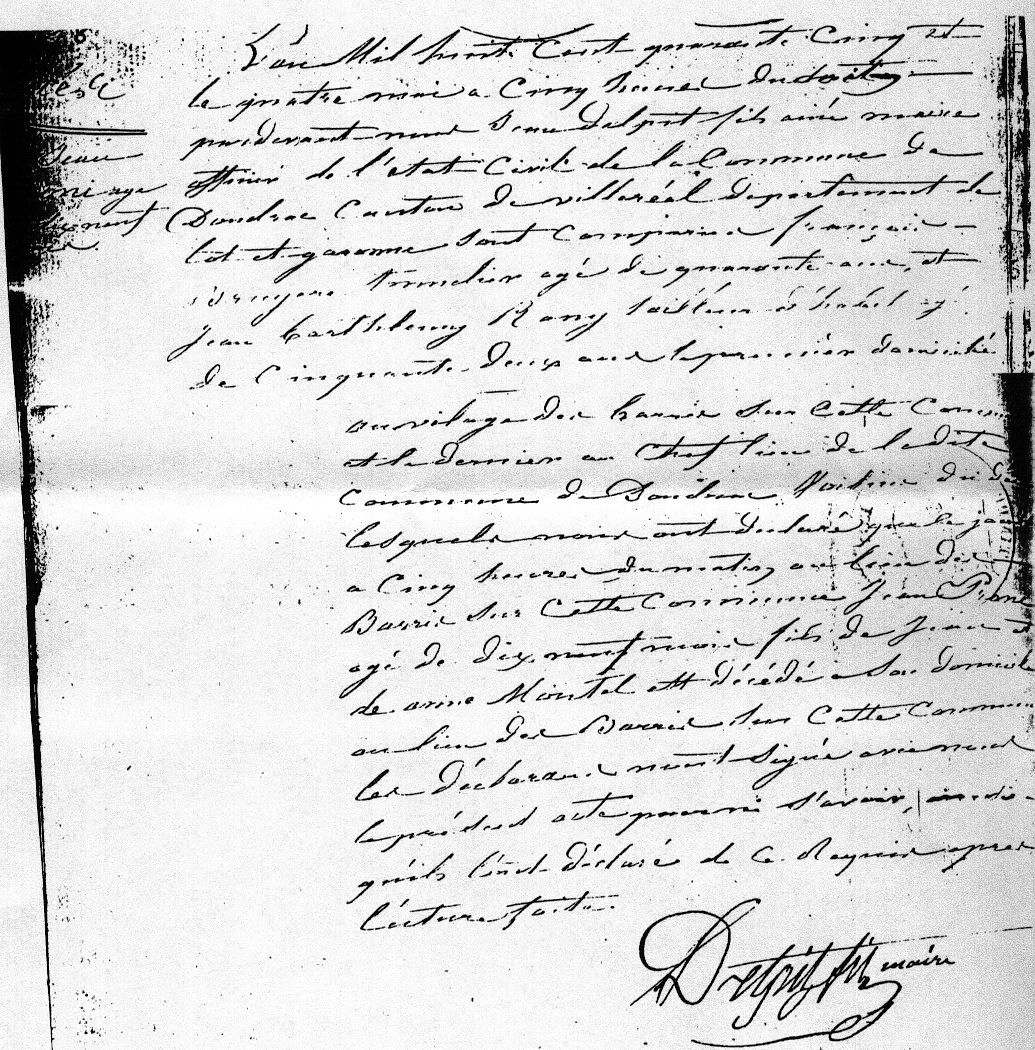 L'an Mil huit Cent quarante Cinq et
le quatre mai a Cinq heures du
pardevant nous Jean Delpit fils ainé maire
officier de l'état Civil de la Commune de
Doudrac Canton de villeréal departement de
lot et garonne Sont Comparus françois
agé de quarante ans, et
Jean barthelemy Rany tailleur d'habit
de Cinquante deux ans le premier domicilié
au vilage des barris Sur Cette Comm
et le dernier au Chef lieu de la dite
Commune de Doudrac Voisins du
lesquels nous ont declaré que le
a Cinq heures du matin au lieu des
Barris Sur Cette Commune Jean
agé de dix neuf mois fils de Jean et
de anne Montel est décédé a Son domicile
au lieu des Barris Sur Cette Commun
les déclarans n'ont Signé avec nous
le présent acte pour ne Savoir,
qu'ils l'ont déclaré de Ce Requis apres
lecture faite.
Jean
neuf
Delpit fils maire